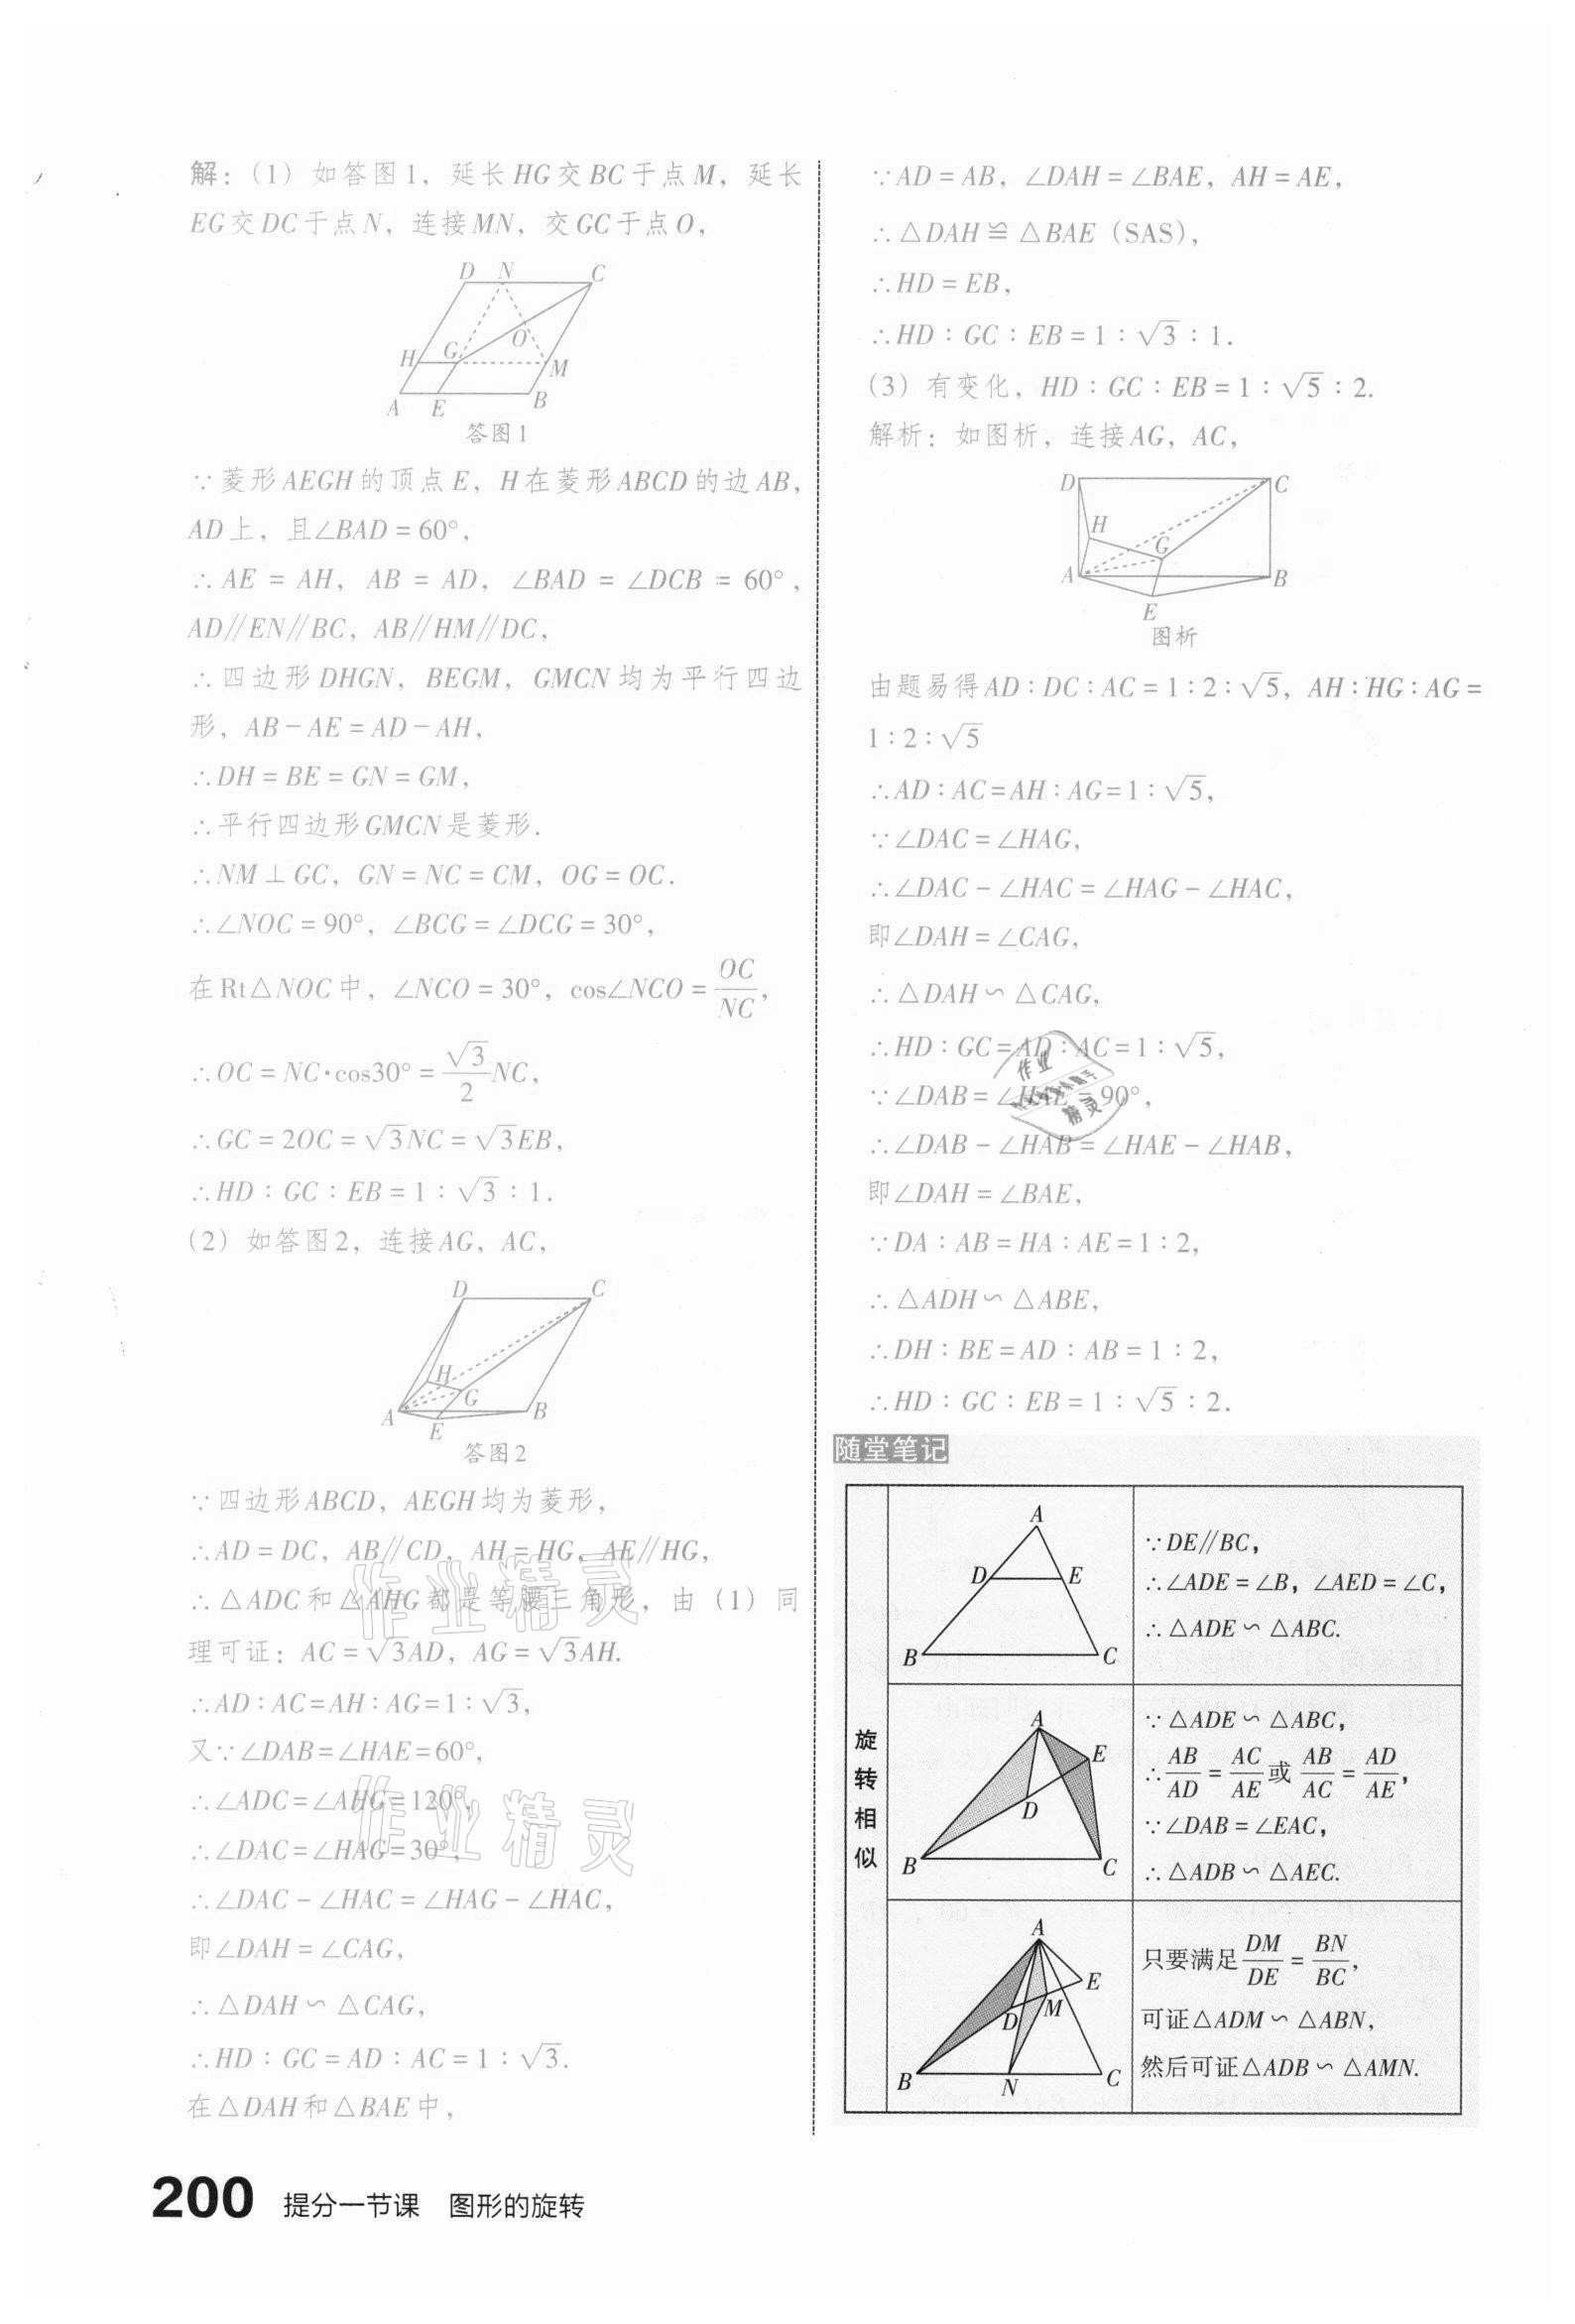 解：(1) 如答图1，延长HG交BC于点M，延长
EG交DC于点N，连接MN，交GC于点O，
D N C
H G O M
A E B
答图1
∵菱形AEGH的顶点E，H在菱形ABCD的边AB，
AD上，且∠BAD=60°，
∴AE = AH，AB = AD，∠BAD = ∠DCB = 60°，
AD∥EN∥BC，AB∥HM∥DC，
∴四边形DHGN，BEGM，GMCN均为平行四边
形，AB-AE=AD-AH，
∴DH=BE=GN=GM，
∴平行四边形GMCN是菱形.
∴NM⊥GC，GN=NC=CM，OG=OC.
∴∠NOC=90°，∠BCG=∠DCG=30°，
在Rt△NOC中，∠NCO=30°，cos∠NCO=OC/NC，
∴OC=NC·cos30°=√3/2NC，
∴GC=2OC=√3NC=√3EB，
∴HD∶GC∶EB=1∶√3∶1.
(2) 如答图2，连接AG，AC，
D C
H G
A E B
答图2
∵四边形ABCD，AEGH均为菱形，
∴AD=DC，AB∥CD，AH=HG，AE∥HG，
∴△ADC和△AHG都是等腰三角形，由(1)同
理可证：AC=√3AD，AG=√3AH.
∴AD∶AC=AH∶AG=1∶√3，
又∵∠DAB=∠HAE=60°，
∴∠ADC=∠AHG=120°，
∴∠DAC=∠HAG=30°，
∴∠DAC-∠HAC=∠HAG-∠HAC，
即∠DAH=∠CAG，
∴△DAH∽△CAG，
∴HD∶GC=AD∶AC=1∶√3.
在△DAH和△BAE中，
∵AD=AB，∠DAH=∠BAE，AH=AE，
∴△DAH≌△BAE（SAS），
∴HD=EB，
∴HD∶GC∶EB=1∶√3∶1.
(3) 有变化，HD∶GC∶EB=1∶√5∶2.
解析：如图析，连接AG，AC，
D C
H G
A B
E
图析
由题易得AD∶DC∶AC=1∶2∶√5，AH∶HG∶AG=
1∶2∶√5
∴AD∶AC=AH∶AG=1∶√5，
∵∠DAC=∠HAG，
∴∠DAC-∠HAC=∠HAG-∠HAC，
即∠DAH=∠CAG，
∴△DAH∽△CAG，
∴HD∶GC=AD∶AC=1∶√5，
∵∠DAB=∠HAE=90°，
∴∠DAB-∠HAB=∠HAE-∠HAB，
即∠DAH=∠BAE，
∵DA∶AB=HA∶AE=1∶2，
∴△ADH∽△ABE，
∴DH∶BE=AD∶AB=1∶2，
∴HD∶GC∶EB=1∶√5∶2.
随堂笔记
旋转相似
A
D E
B C
∵DE∥BC，
∴∠ADE=∠B，∠AED=∠C，
∴△ADE∽△ABC.
A
E
D
B C
∵△ADE∽△ABC，
∴AB/AD=AC/AE或AB/AC=AD/AE，
∵∠DAB=∠EAC，
∴△ADB∽△AEC.
A
E
D M
B N C
只要满足DM/DE=BN/BC，
可证△ADM∽△ABN，
然后可证△ADB∽△AMN.
作业精灵
作业精灵
作业
精灵
200 提分一节课 图形的旋转